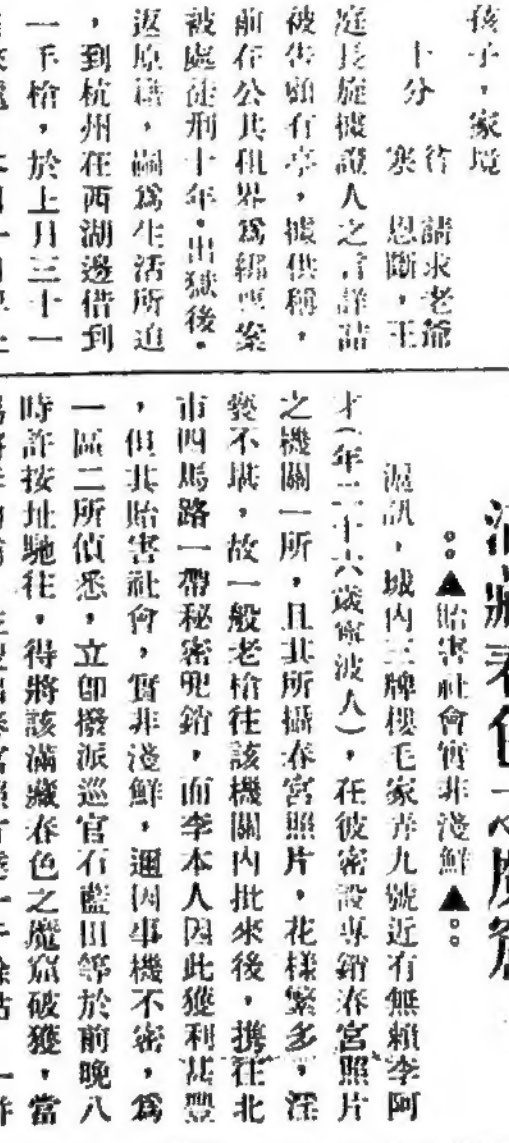 孩子，家境
十分　寒苦　請求老爺恩斷，王
庭長旋據證人之言詳詰
被告顧有亭，據供稱，
前在公共租界爲綁票案
被處徒刑十年，出獄後，
返原籍，嗣爲生活所迫
，到杭州在西湖邊借到
一手槍，於上月三十一
滿藏春色之魔窟
▲貽害社會實非淺鮮▲
滬訊，城內三牌樓毛家弄九號近有無賴李阿
才（年二十六歲寧波人），在彼密設專銷春宮照片
之機關一所，且其所攝春宮照片，花樣繁多，淫
褻不堪，故一般老槍往該機關內批來後，携往北
市四馬路一帶秘密兜銷，而李本人因此獲利甚豐
，但其貽害社會，實非淺鮮，邇因事機不密，爲
一區二所偵悉，立卽撥派巡官石藍田等於前晚八
時許按址馳往，得將該滿藏春色之魔窟破獲，當